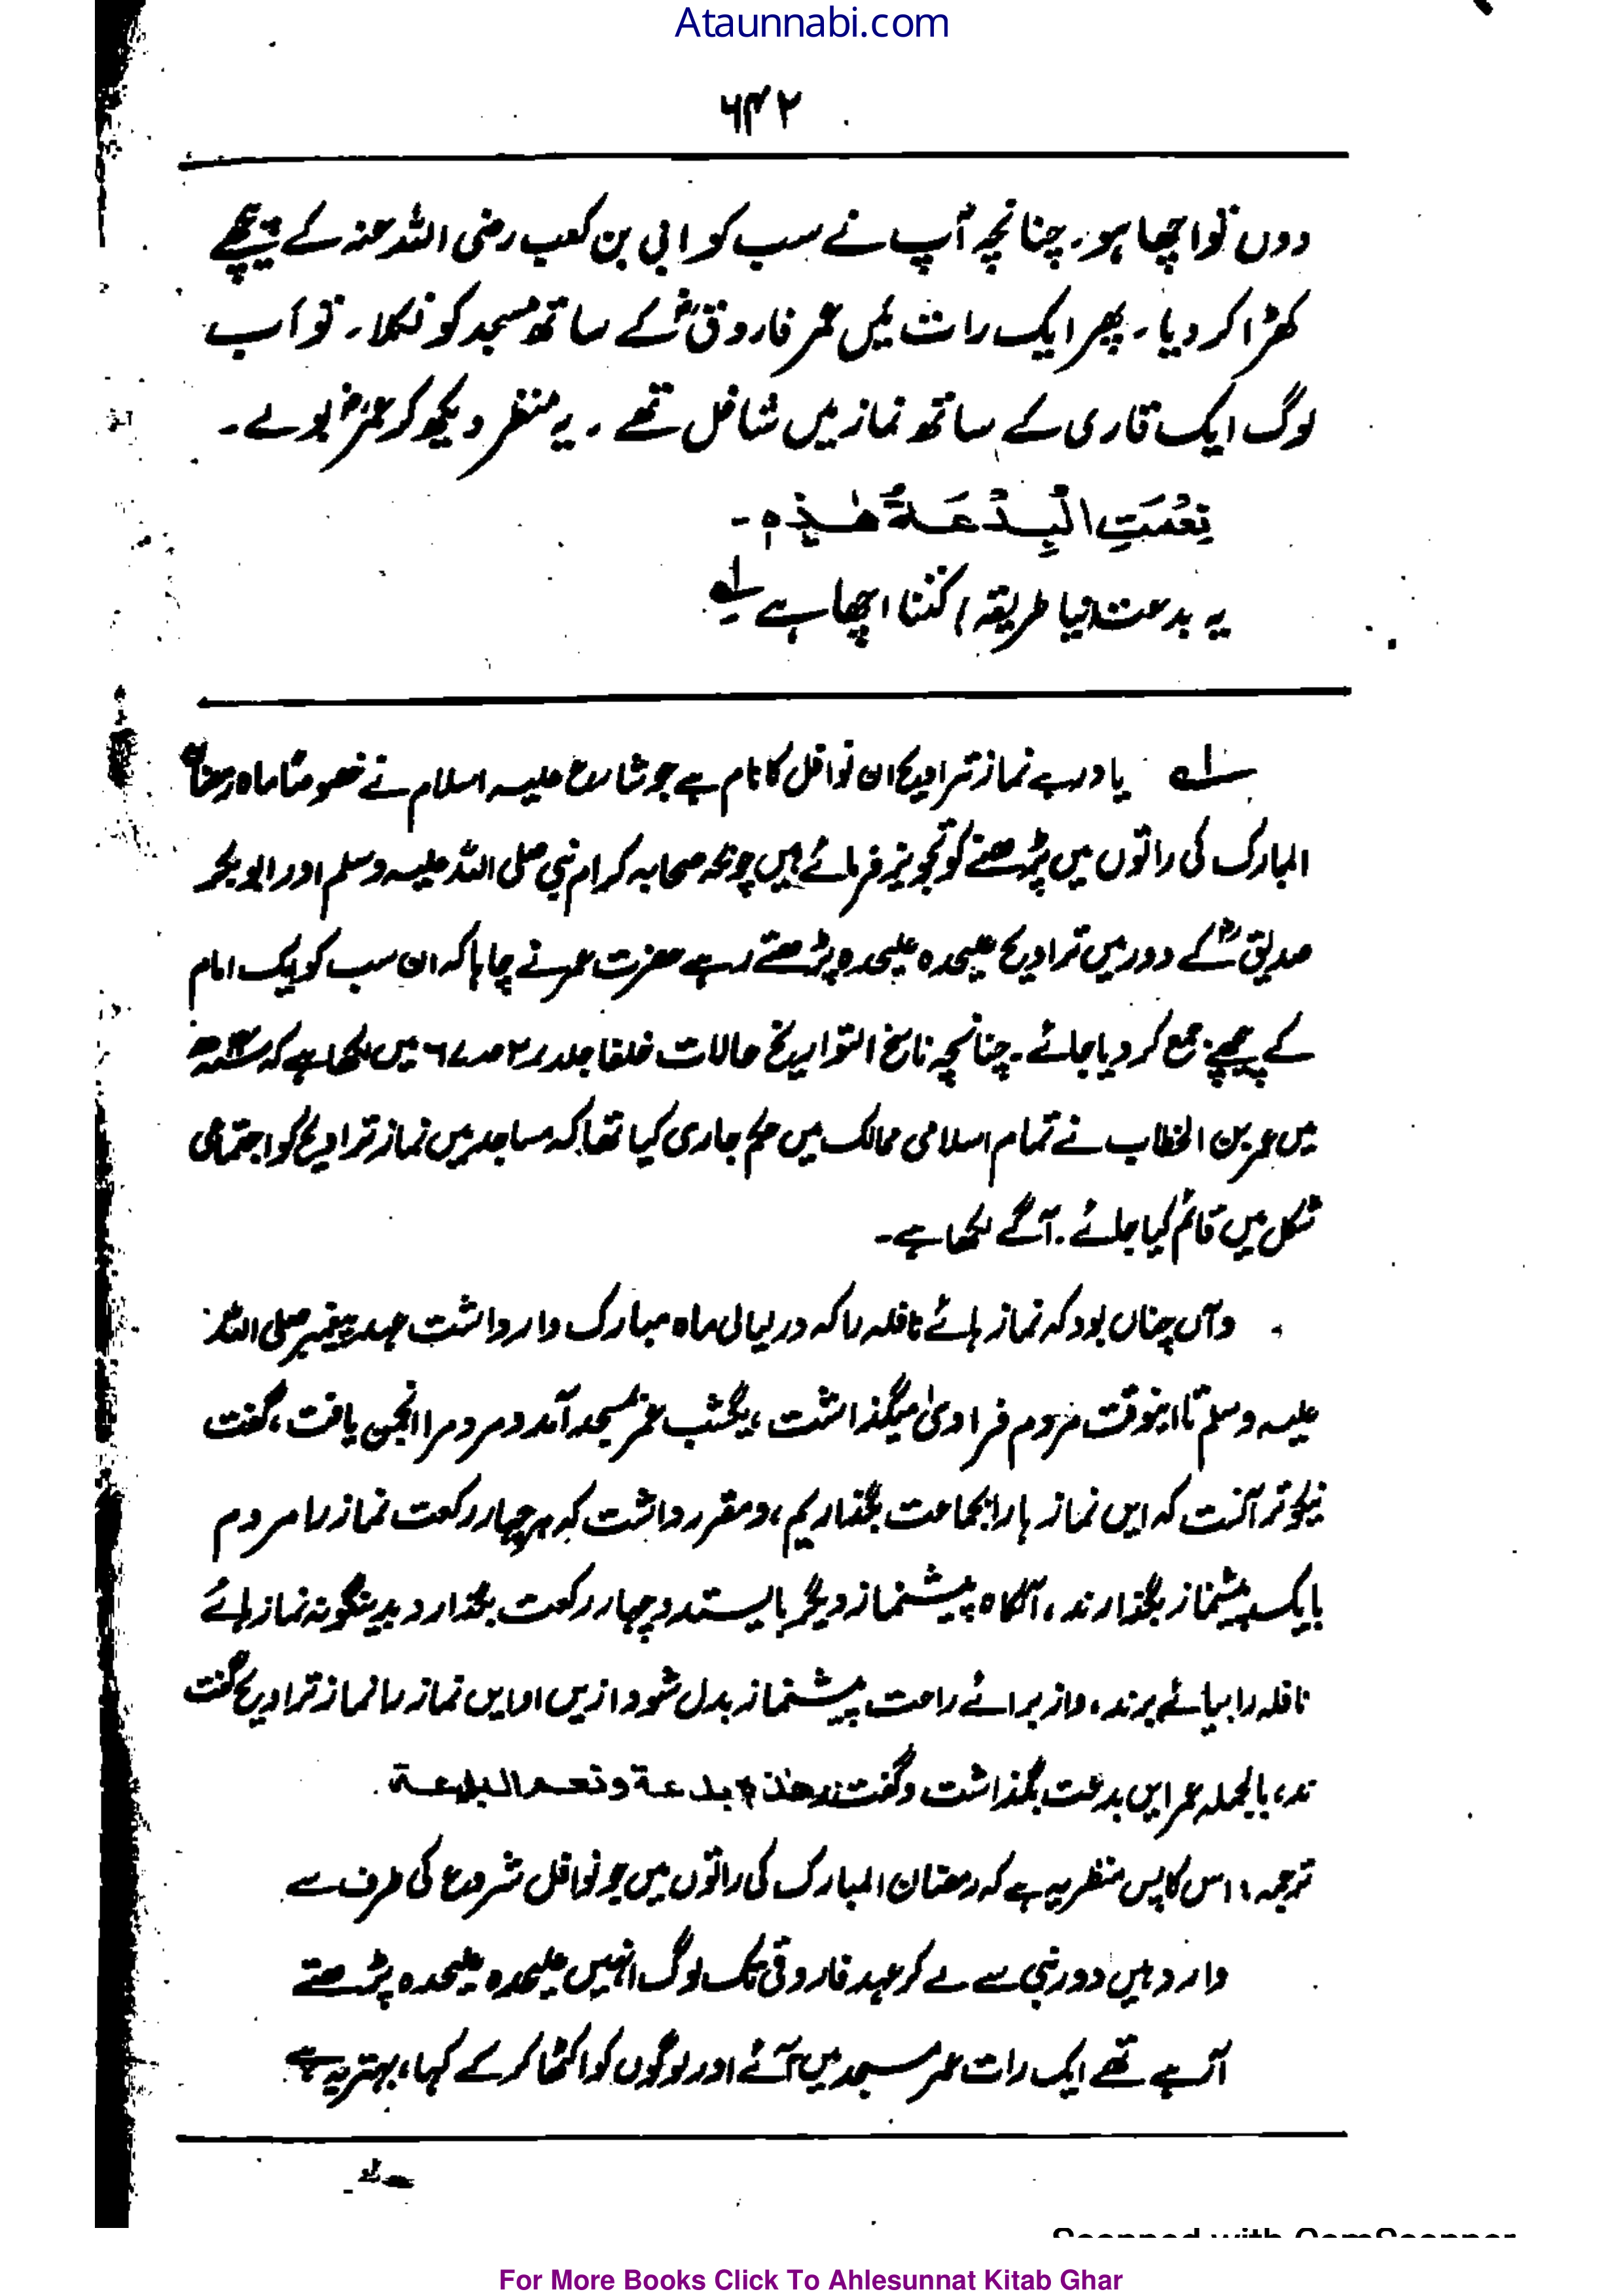 Ataunnabi.com
۶۴۲
دوں تو اچھا ہو۔ چنانچہ آپ نے سب کو ابی بن کعب رضی اللہ عنہ کے پیچھے
کھڑا کر دیا۔ پھر ایک رات میں عمر فاروق رضؓ کے ساتھ مسجد کو نکلا۔ تو اب
لوگ ایک قاری کے ساتھ نماز میں شاغل تھے۔ یہ منظر دیکھ کر عمرؓ بولے۔
نِعْمَتِ الْبِدْعَةُ هٰذِهٖ۔
یہ بدعت (نیا طریقہ) کتنا اچھا ہے لہ
لہ یاد رہے نماز تراویح ان نوافل کا نام ہے جو شارع علیہ السلام نے خصوصًا ماہ رمضان
المبارک کی راتوں میں پڑھنے کو تجویز فرمائے ہیں چونکہ صحابہ کرام نبی صلی اللہ علیہ وسلم اور ابو بکر
صدیق رضؓ کے دور میں تراویح علیحدہ علیحدہ پڑھتے رہے حضرت عمر نے چاہا کہ ان سب کو ایک امام
کے پیچھے جمع کر دیا جائے۔ چنانچہ ناسخ التواریخ حالات خلفا جلد ۲ میں لکھا ہے کہ
میں عمر بن الخطاب نے تمام اسلامی ممالک میں حکم جاری کیا تھا کہ مساجد میں نماز تراویح کو اجتماعی
شکل میں قائم کیا جائے۔ آگے لکھا ہے۔
وآں چناں بود کہ نماز ہائے نافلہ را کہ در لیالی ماہ مبارک وارد داشت عہد پیغمبر صلی اللہ
علیہ وسلم تا اینوقت مردم فرادیٰ میگذاشت، یکشب عمر بمسجد آمد و مردم را انجمن یافت، گفت
نیکوتر آنست کہ ایں نماز ہا را بجماعت بگذاریم، و مقرر داشت کہ ہر چہار رکعت نماز را مردم
با یک پیشنماز بگذارند، آنگاہ پیشنماز دیگر بایستد و چہار رکعت بگذارد بدینگونہ نماز ہائے
نافلہ را بپائے برند، و از برائے راحت پیشنماز بدل شود ازیں رو ایں نماز را نماز تراویح گفت
ند، بالجملہ عمر ایں بدعت بگذاشت و گفت هذه بدعة ونعم البدعة۔
ترجمہ: اس کا پس منظر یہ ہے کہ رمضان المبارک کی راتوں میں جو نوافل شروع کی طرف سے
وارد ہیں دور نبی سے لے کر عہد فاروقی تک لوگ انہیں علیحدہ علیحدہ پڑھتے
آرہے تھے ایک رات عمر مسجد میں آئے اور لوگوں کو اکٹھا کر کے کہا، بہتر یہ ہے
For More Books Click To Ahlesunnat Kitab Ghar